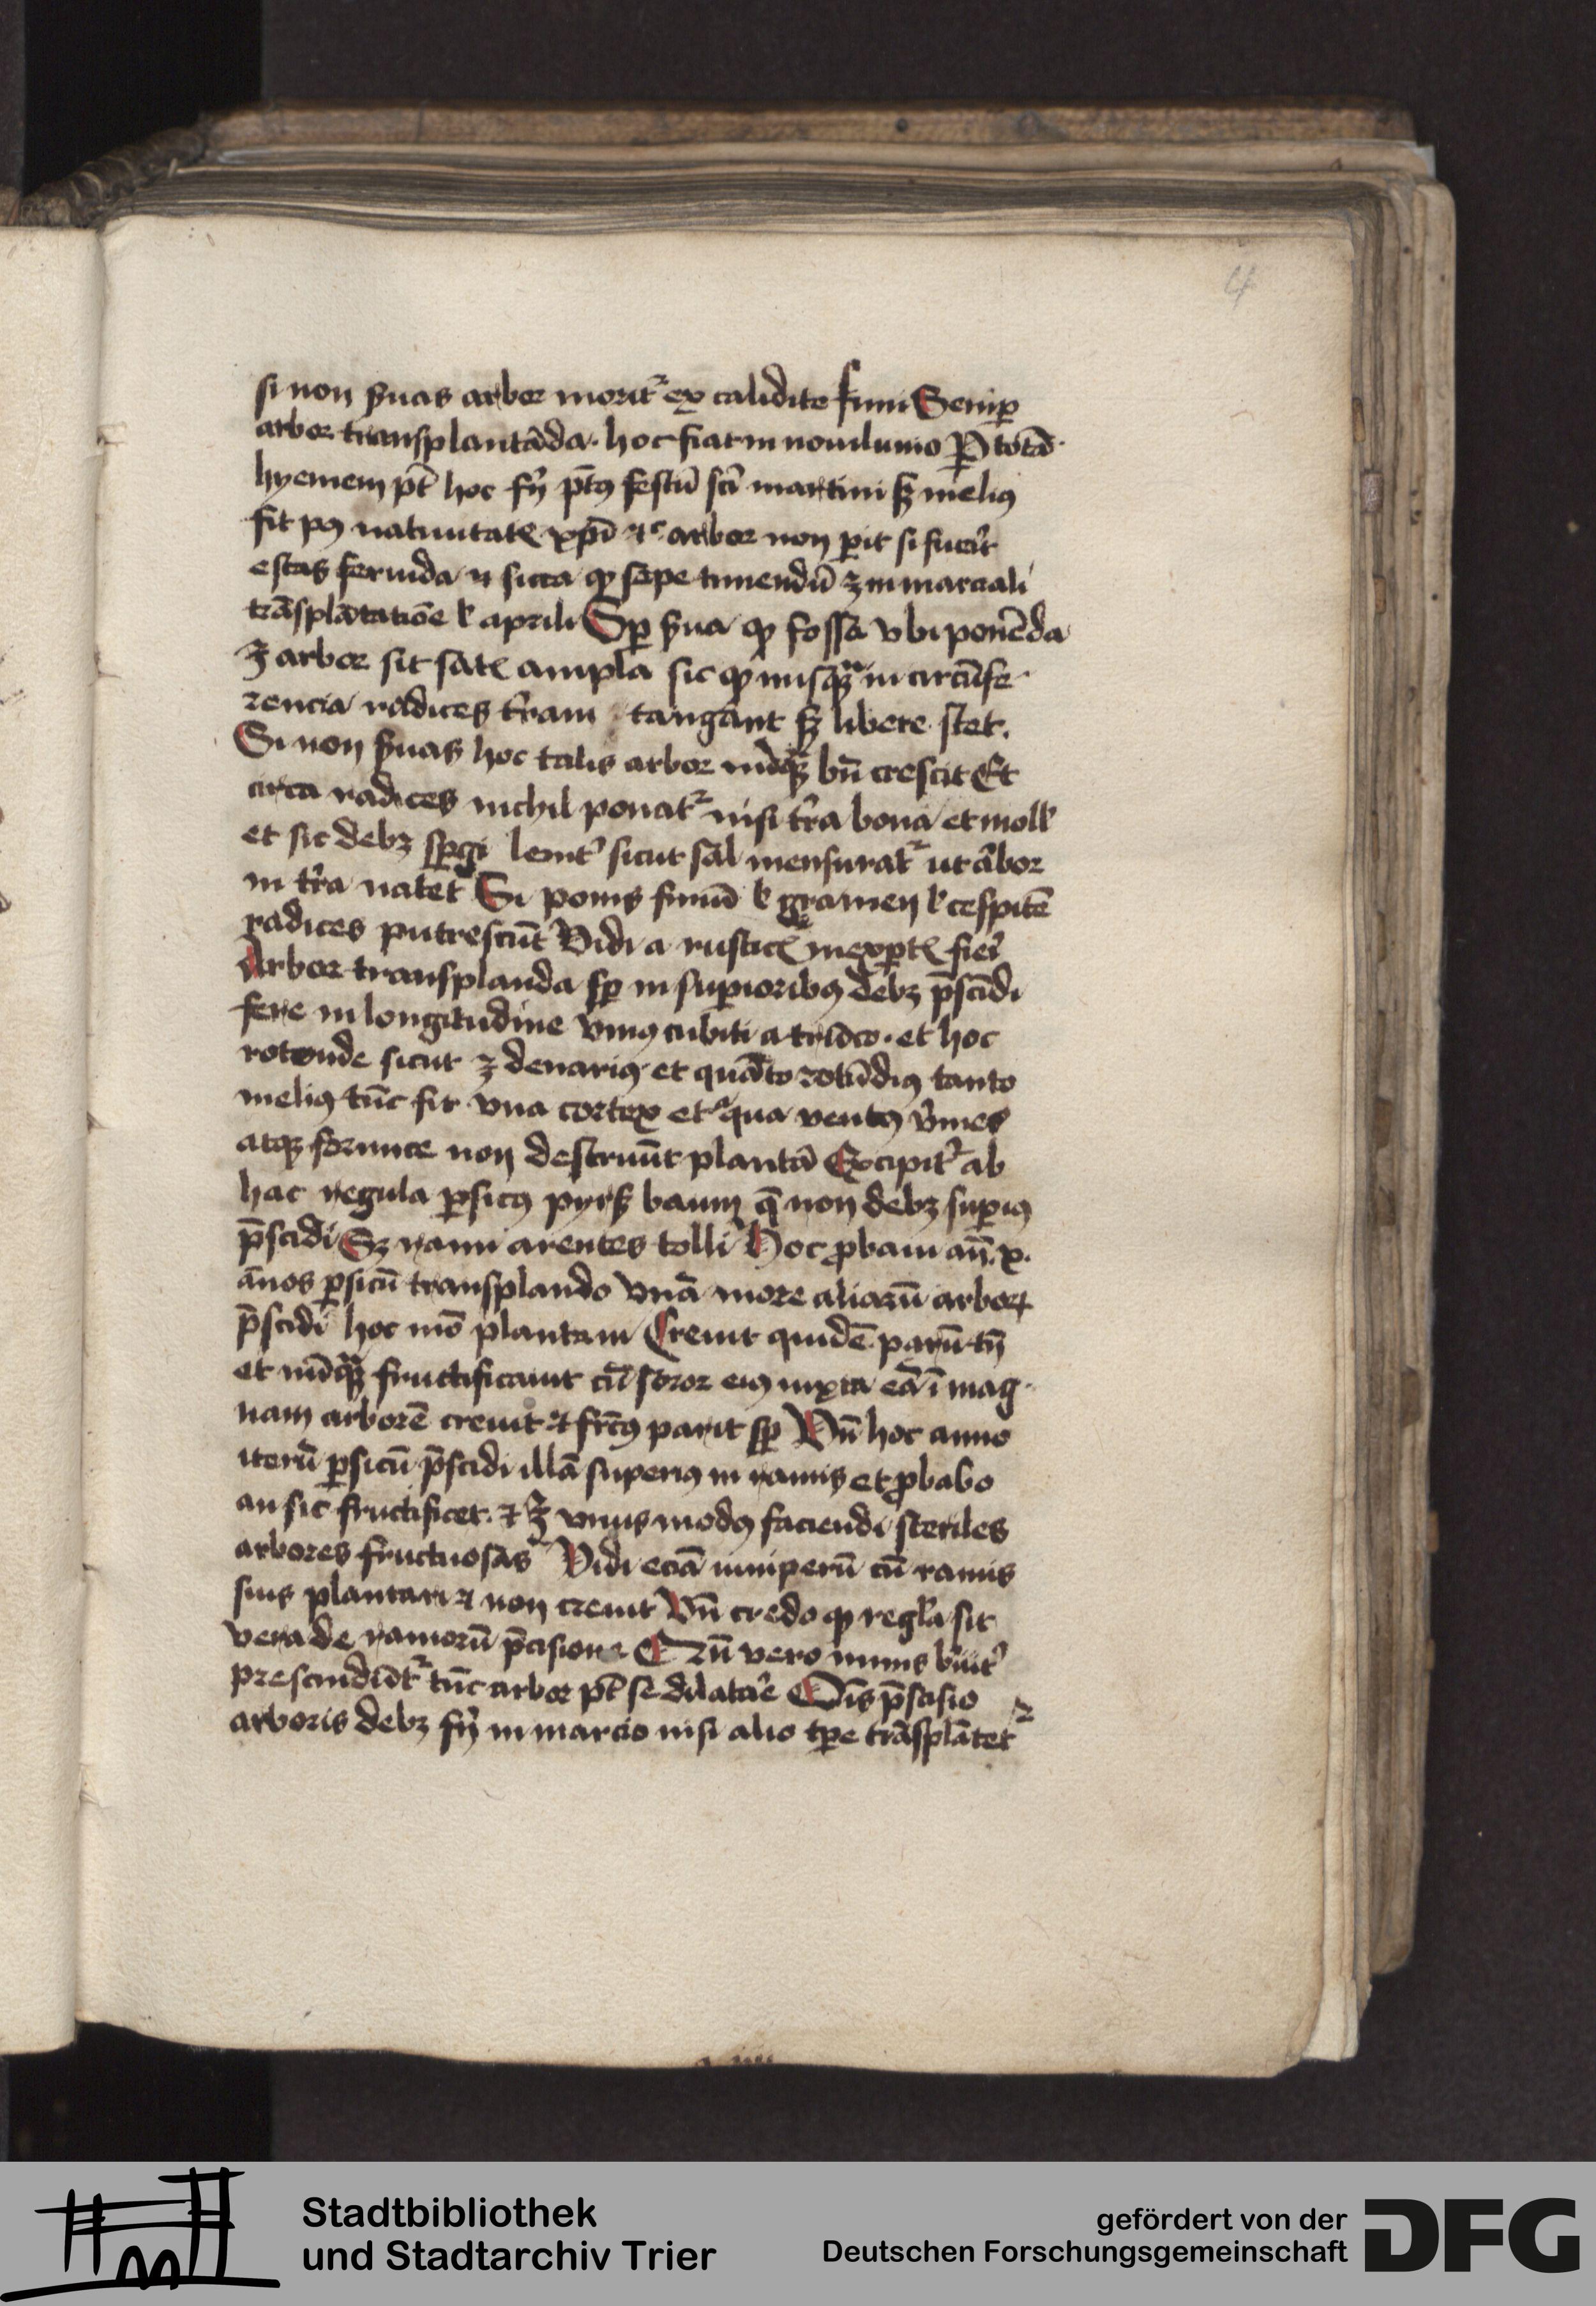 4
si non ẜuas arbor morit᷑ ex calidite fimi Semꝑ
arbor transplantāda· hoc fiat in nouilunio Ꝑ totā
hyemem pt̄ hoc fiͥ p̄tꝰ festū sci̅ martini sꝫ meliꝰ
fit pꝰ natiuitatē xpi̅ ⁊c̉ arbor non ꝑit si fuerit̉
estas feruida ⁊ sicca ꝙ sepe timendū ꝫ in marciali
trāsplātatiōe ł aprili Sꝑ ẜua ꝙ fossa vbi ponēda
ꝫ arbor sit satꝭ ampla sic ꝙ nusqꝫ in circūfe
rencia radices tr̉am tangant sꝫ libere stet.
Si non ẜuas hoc talis arbor nūqꝫ bn̄ crescit Et
circa radices nichil ponat᷑ nisi tr̉a bona et moll'
et sic debꝫ sꝑgi lenit̉ sicut sal mensurat᷑ ut arbor
in tr̉a natet Si ponis fimū ł gramen ł cespitē
radices putrescūt Vidi a rusticꝭ inexꝑtꝭ fierỉ
Arbor transplanda sꝑ in suꝑioribꝰ debꝫ p̄scīdi
fere in longitudine vniꝰ cubiti a trūco· et hoc
rotonde sicut ꝫ denariꝰ et quāto rotūdiꝰ tanto
meliꝰ tūc fit vna cortex et aqua ventꝰ v̉mes
atqꝫ formice non destruūt plantā Excipit᷑ ab
hac regula ꝑsicꝰ pyrsz baum q̄ non debꝫ suꝑiꝰ
p̄scidi Sꝫ rami arentes tolli Hoc ꝓbaui an̄. x.
ānos ꝑsicū transplando vnā more aliarū arboꝝ
p̄scidi hoc mō plantam Creuit quidē parū tn̄
et nūqꝫ fructificauit cū soror eiꝰ iuxta eā ī mag
nam arborē creuit ⁊ frc̄ꝰ parit sꝑ Vn̄ hoc anno
iterū ꝑsicū p̄scidi illā superiꝰ in ramis et ꝓbabo
an sic fructificet. ⁊ ꝫ vnus modꝰ faciendi steriles
arbores fructuosas Vidi eciā iuniperū cū ramis
suis plantari ⁊ non creuit Vn̄ credo ꝙ regl̉a sit
vera de ramorū p̄cisione Cū vero nimis breuit̉
prescindūt᷑ tūc arbor pt̄ se dilatar̉e Oīs p̄scisio
arboris debꝫ fiͥ in marcio nisi alio tꝑe trāsplātet᷑
Stadtbibliothek
und Stadtarchiv Trier
gefördert von der
Deutschen Forschungsgemeinschaft
DFG